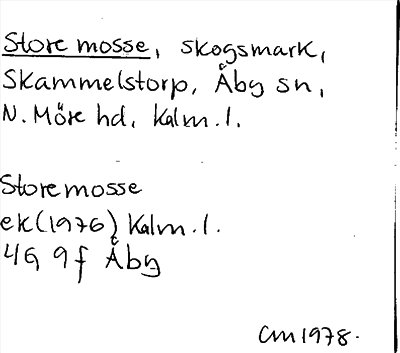 Store mosse, skogsmark,
Skammelstorp, Åby sn,
N. Möre hd, Kalm. l.
Storemosse
ek (1976) Kalm. l.
4G 9f Åby
CM 1978.